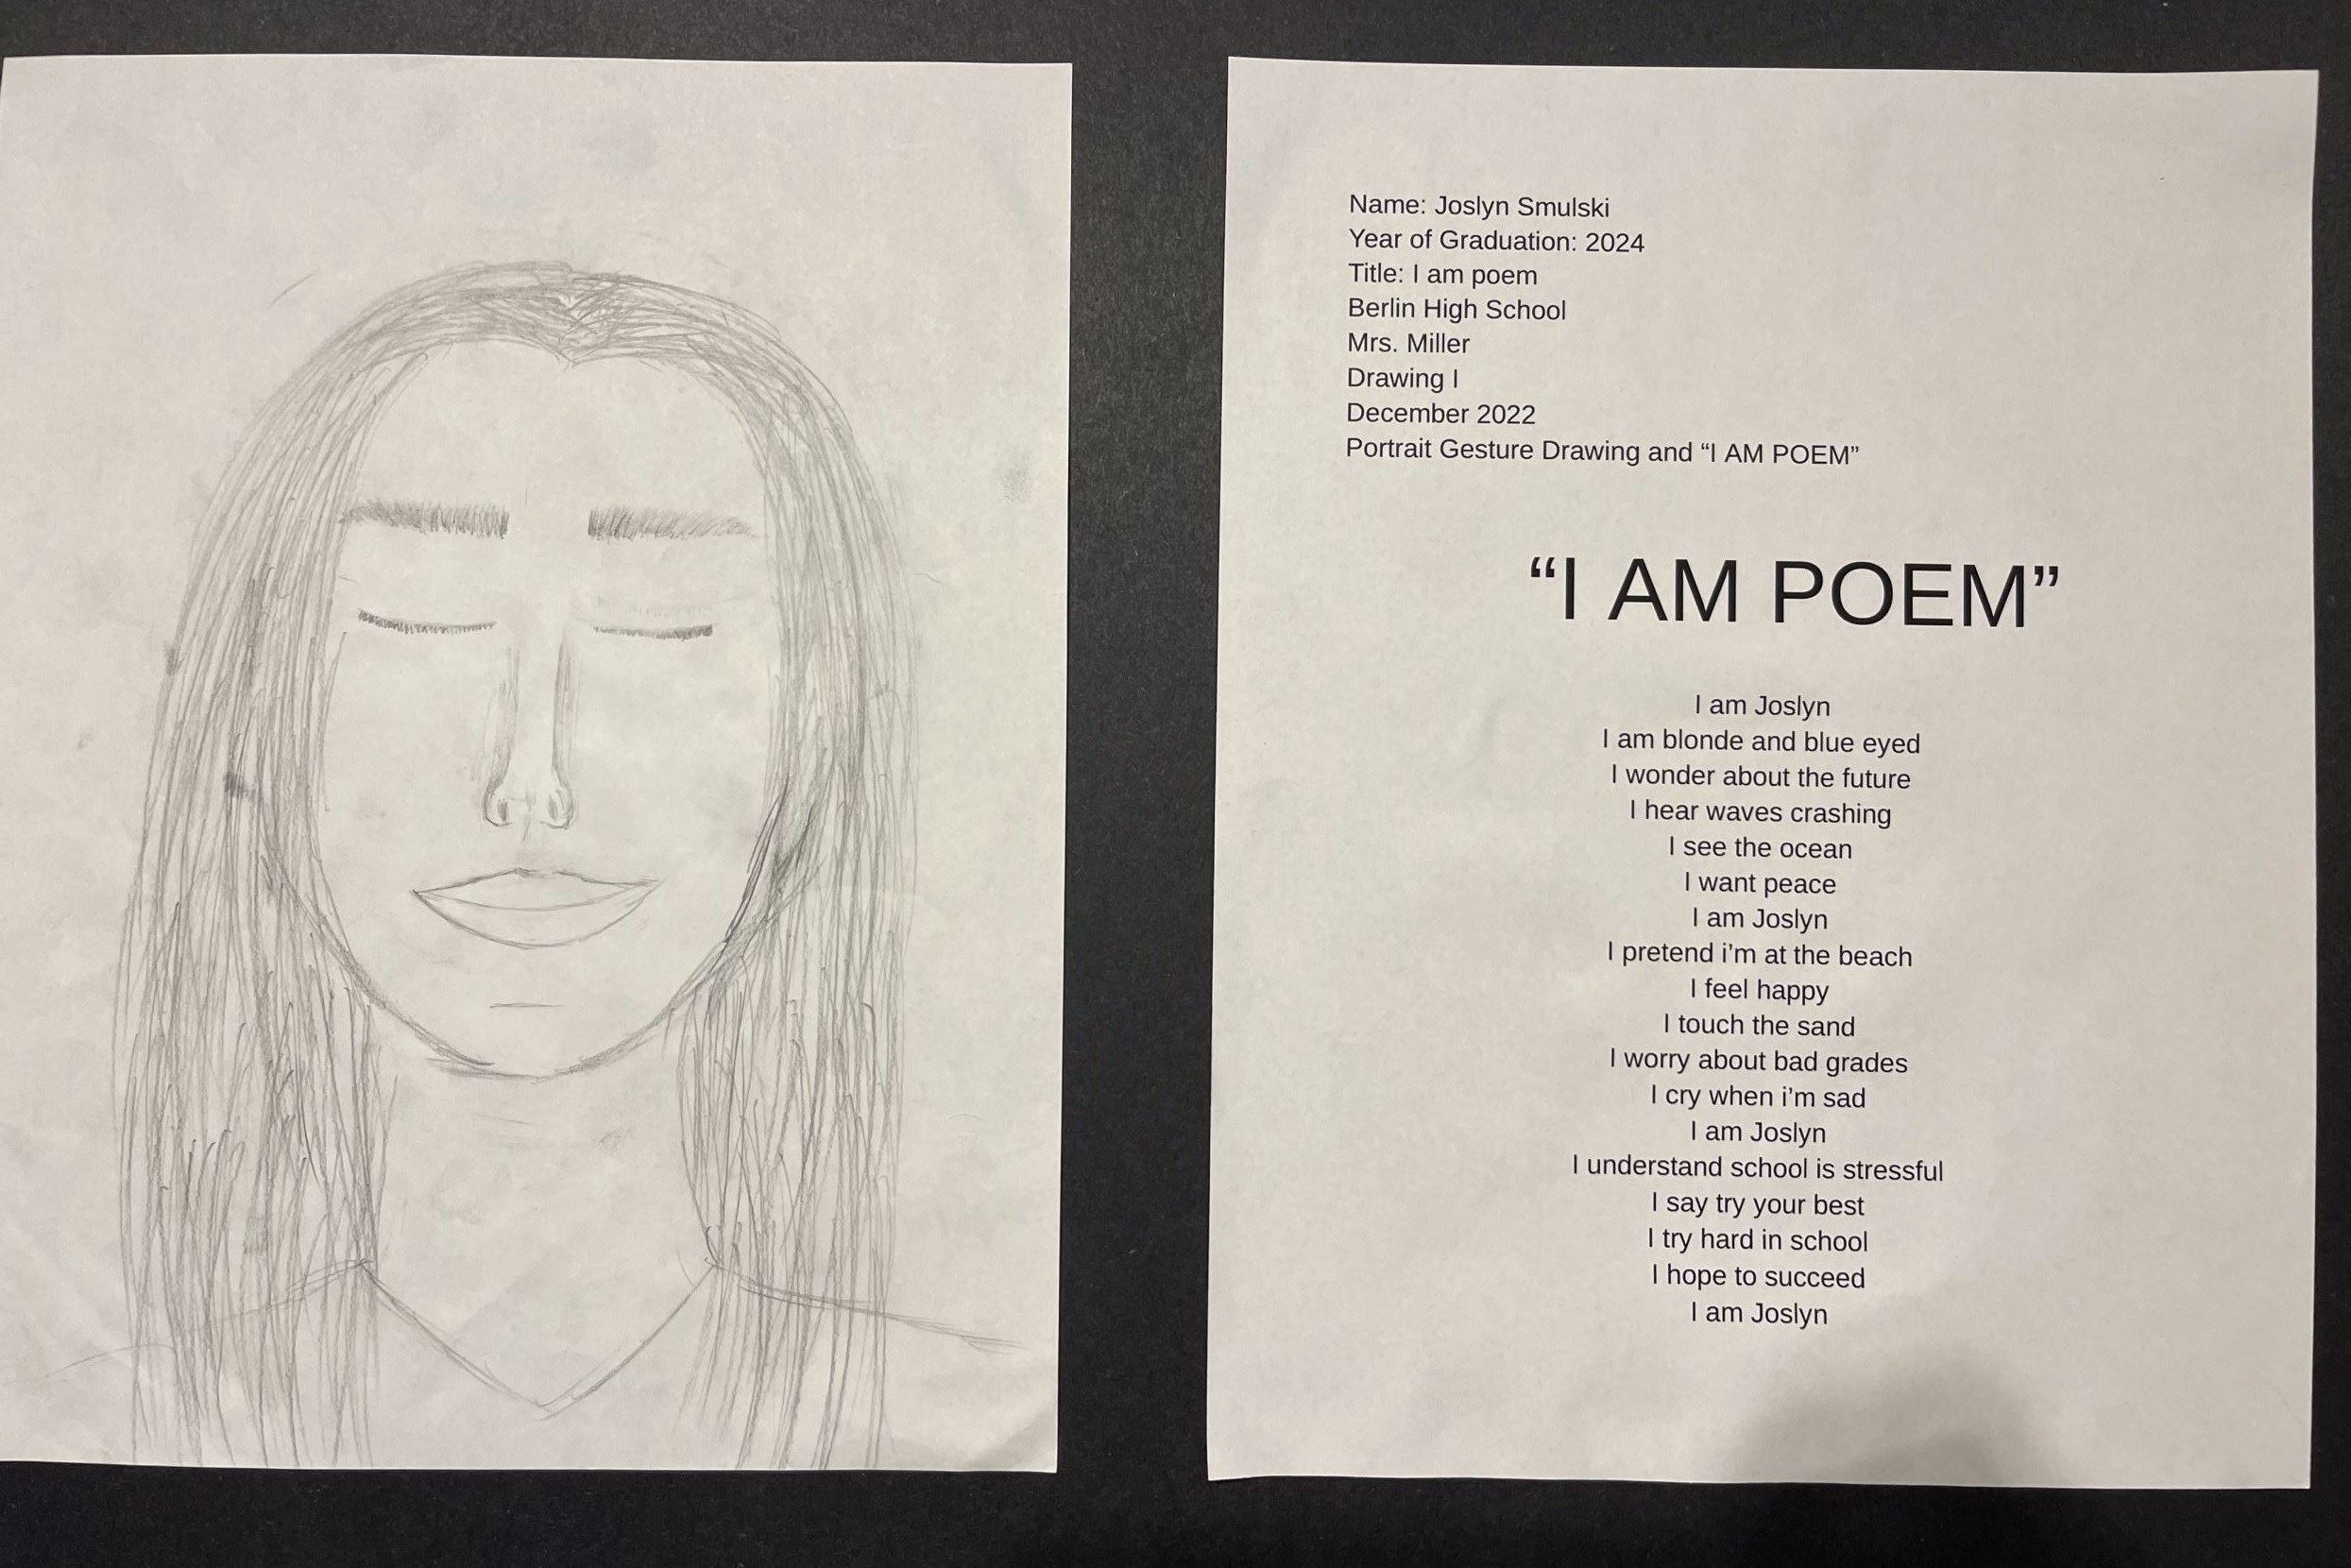 Name: Joslyn Smulski
Year of Graduation: 2024
Title: I am poem
Berlin High School
Mrs. Miller
Drawing I
December 2022
Portrait Gesture Drawing and “I AM POEM”
“I AM POEM”
I am Joslyn
I am blonde and blue eyed
I wonder about the future
I hear waves crashing
I see the ocean
I want peace
I am Joslyn
I pretend i’m at the beach
I feel happy
I touch the sand
I worry about bad grades
I cry when i’m sad
I am Joslyn
I understand school is stressful
I say try your best
I try hard in school
I hope to succeed
I am Joslyn